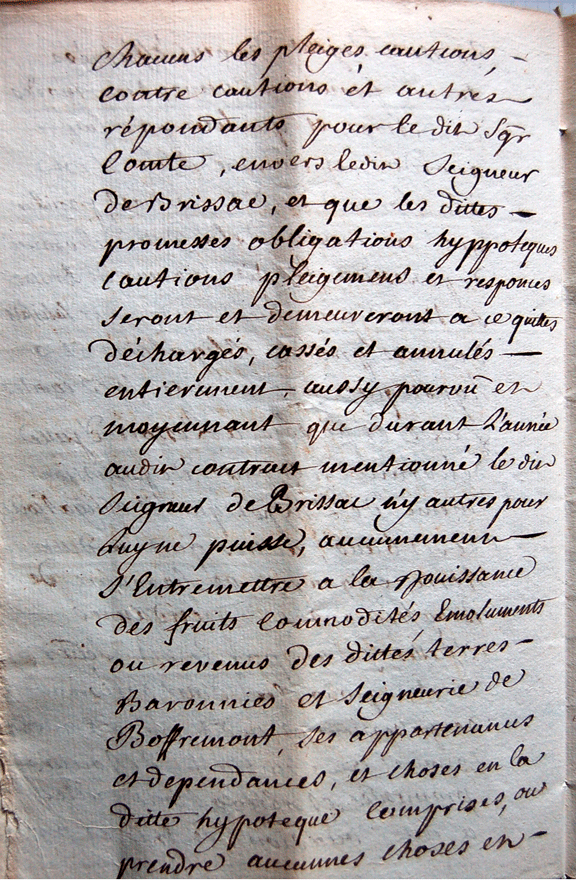 chacuns les pleiges cautions,
contre cautions et autres
répondants pour le dit Sgr
Comte, envers ledit Seigneur
de Brissac, et que les dittes
promesses obligations hyppoteques
cautions pleigemens et responces
seront et demeureront a ce quittes
déchargés, cassés et annulés
entierement, aussy pourvû et
moyennant que durant L'année
audit contract mentionné le dit
Seigneur de Brissac n'y autres pour
Luy ne puisse, aucunement
S'Entremettre a la Jouissance
des fruits Commodités Emoluments
ou revenus des dittes terres
Baronnies et Seigneurie de
Boffremont, ses appartenances
et dependances, et choses en la
ditte hypoteque Comprises, ou
prendre aucunnes choses en